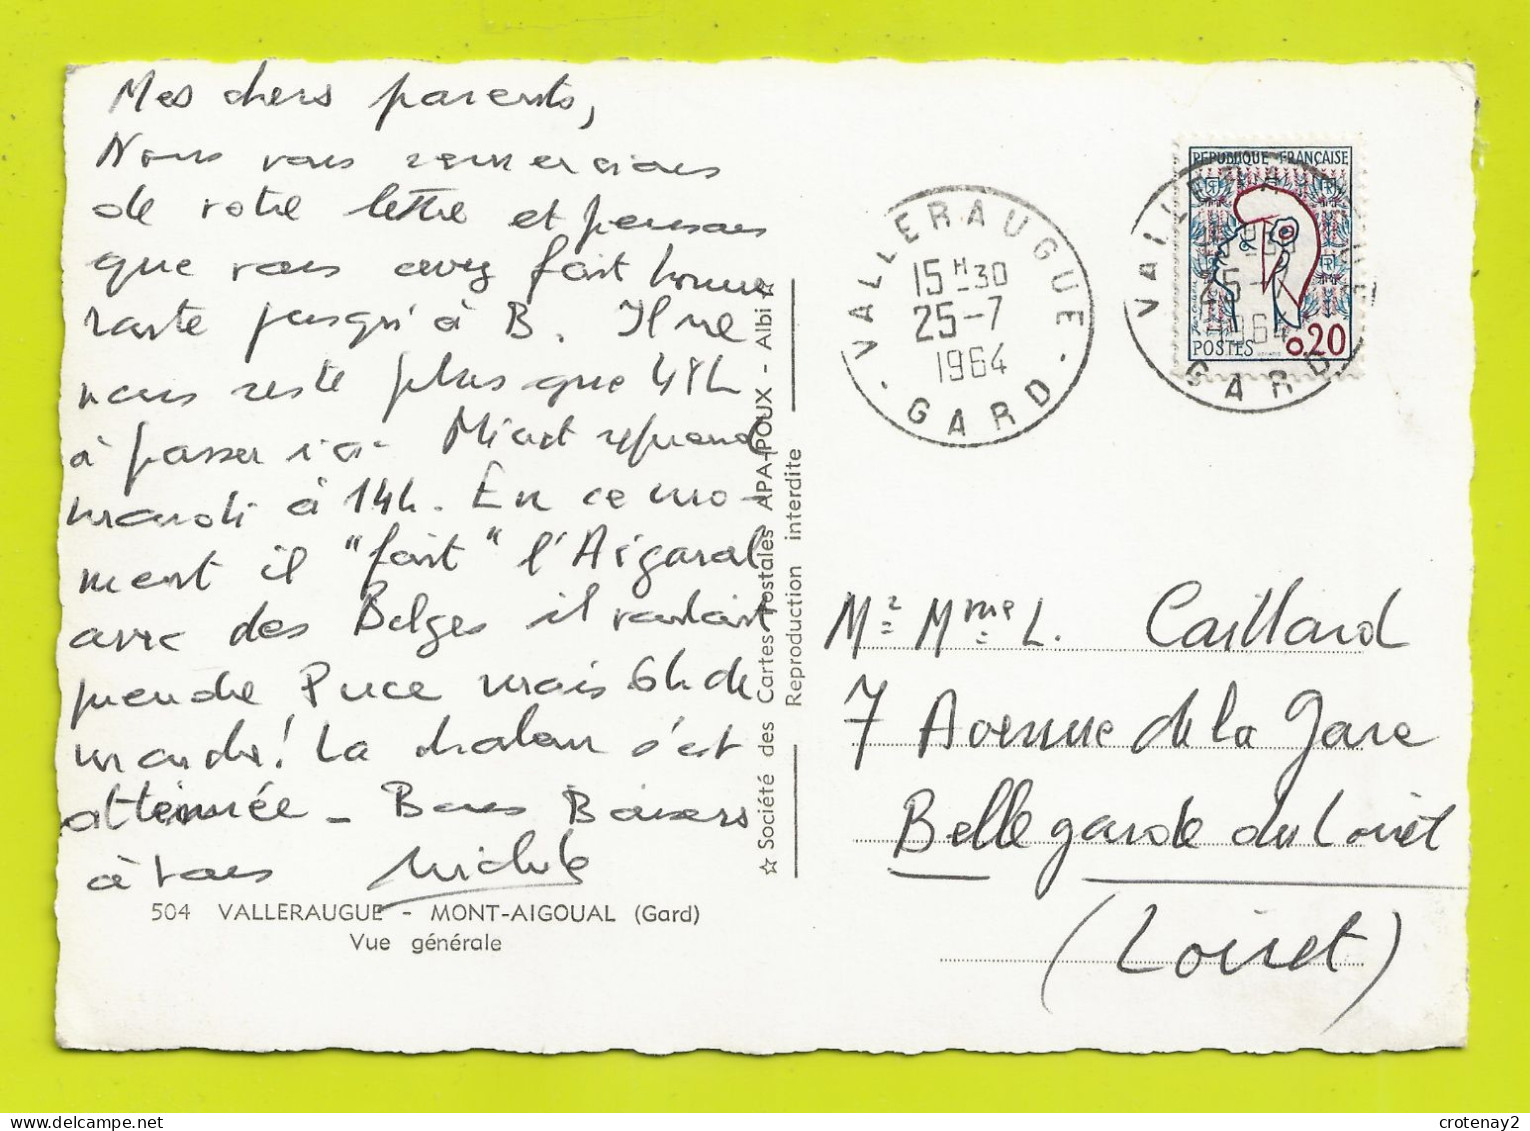 Mes chers parents,
Nous vous remercions
de votre lettre et pensons
que vous avez fait bonne
route jusqu'à B. Il ne
nous reste plus que 48h
à passer ici. reprend
mardi à 14h. En ce mo-
ment il "fait" l'Aigoual
avec des Belges il voulait
prendre Puce mais 6h de
marche! La chaleur s'est
atténuée - Bons Baisers
à tous Michèle
504 VALLERAUGUE - MONT-AIGOUAL (Gard)
Vue générale
☆ Société des Cartes Postales APA-POUX - Albi ☆
Reproduction interdite
VALLERAUGUE
15 H 30
25-7
1964
GARD
RÉPUBLIQUE FRANÇAISE
POSTES 0,20
VALLERAUGUE
1964
GARD
Mr Mme L. Caillard
7 Avenue de la Gare
Bellegarde du Loiret
(Loiret)
crotenay2